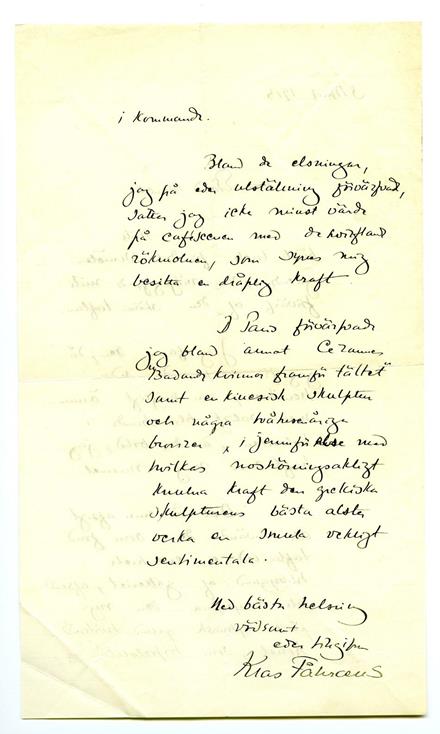 i kommande.
Bland de etsningar,
jag på eder utställning förvärfvade,
sätter jag icke minst värde
på caféscenen med de hvirflande
rökmolnen, som synes mig
besitta en dråplig kraft.
I Paris förvärfvade
jag bland annat Cezannes
"Badande kvinnor framför tältet"
samt en kinesisk skulptur
och några tvåtusenåriga
bronser, i jemnförelse med
hvilkas noshörningsaktigt
knutna kraft den grekiska
skulpturens bästa alster
verka en smula vekligt
sentimentala.
Med bästa helsning
vördsamt
eder tillgifne
Klas Fåhraeus